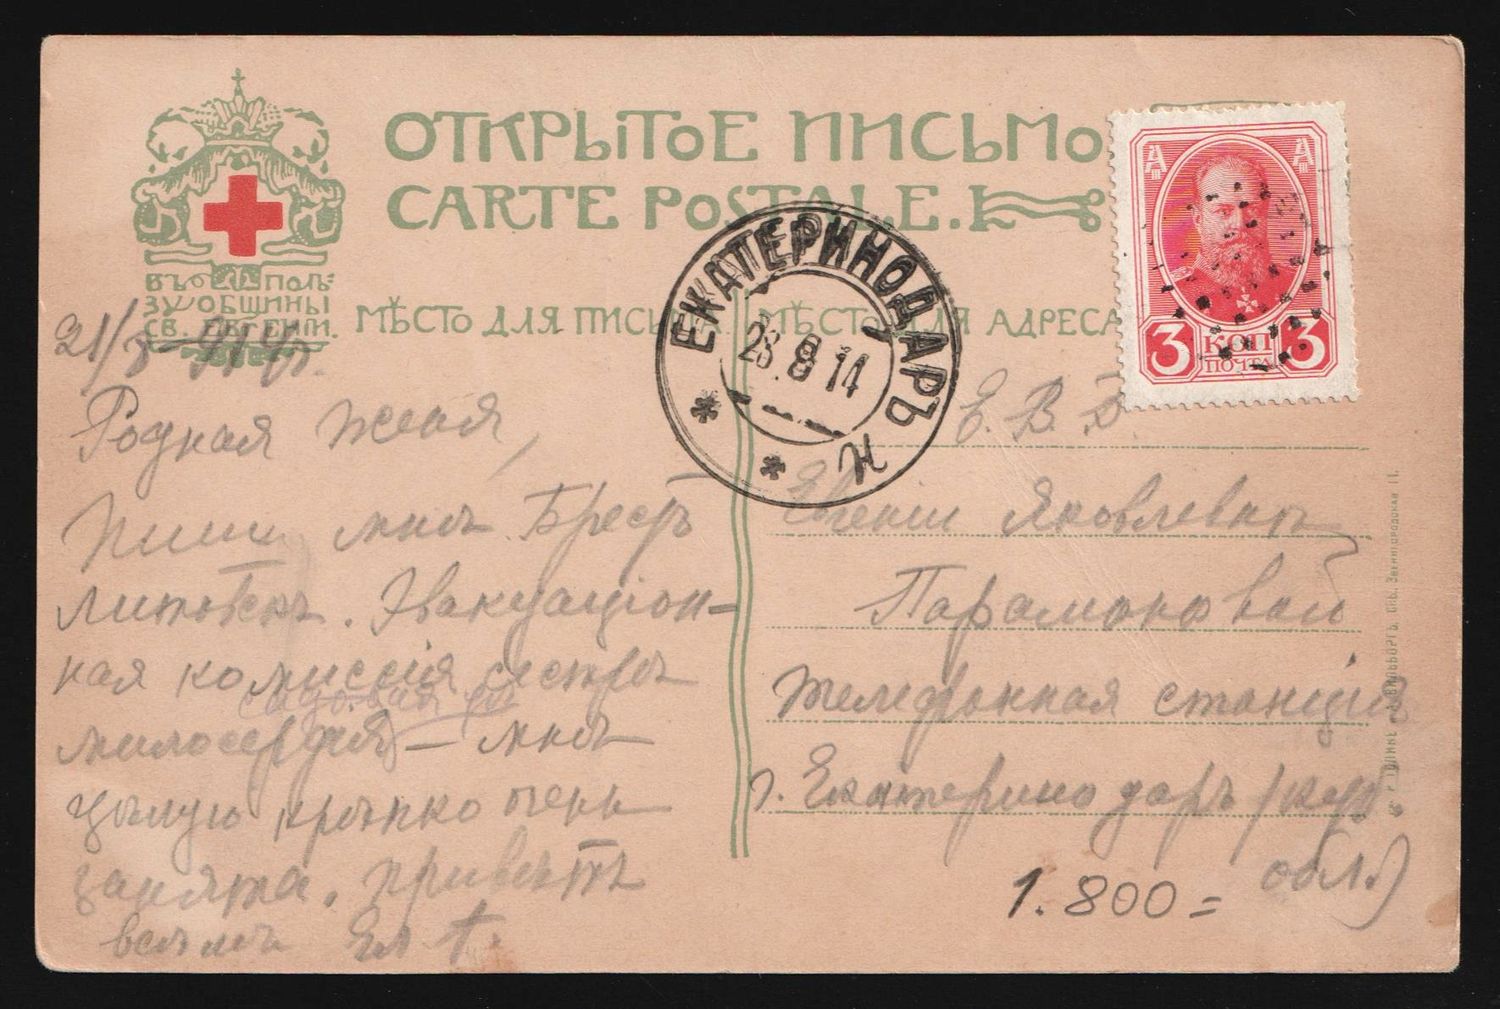 ОТКРЫТОЕ ПИСЬМО
CARTE POSTALE.
ВЪ ПОЛЬ-
ЗУ ОБЩИНЫ
СВ. ЕВГЕНІИ.
МѢСТО ДЛЯ ПИСЬМА. МѢСТО ДЛЯ АДРЕСА
3 КОП 3
ПОЧТА
ЕКАТЕРИНОДАРЪ
26.8 14
н
21/8-914г.
Родная Женя,
Пиши мнѣ Брестъ
Литовскъ. Эвакуаціон-
ная комиссія сестрѣ
милосердія – мнѣ
цѣлую крѣпко очень
занята. Привѣтъ
всѣмъ
Е. В. Б.
Евгеніи Яковлевнѣ
Парамоновой
телефонная станція
г. Екатеринодаръ (куб.
обл.)
1.800=